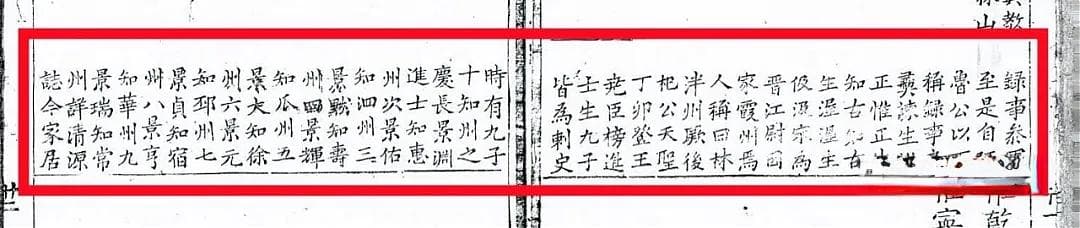 錄事叅
至是自
魯公以
稱錄事
淡生
正惟正生
知古知古
生
宗為
晉江尉因
家霞州焉
人稱曰林
泮州厥後
杞公天聖
丁卯登王
堯臣榜進
士生九子
皆為刺史
時有九子
十知州之
慶長景淵
進士知惠
州次景佑
知泗州三
景默知壽
州四景輝
知瓜州五
景大知徐
州六景元
知邳州七
景貞知宿
州八景亨
知華州九
景瑞知常
州詳清源
誌今家居